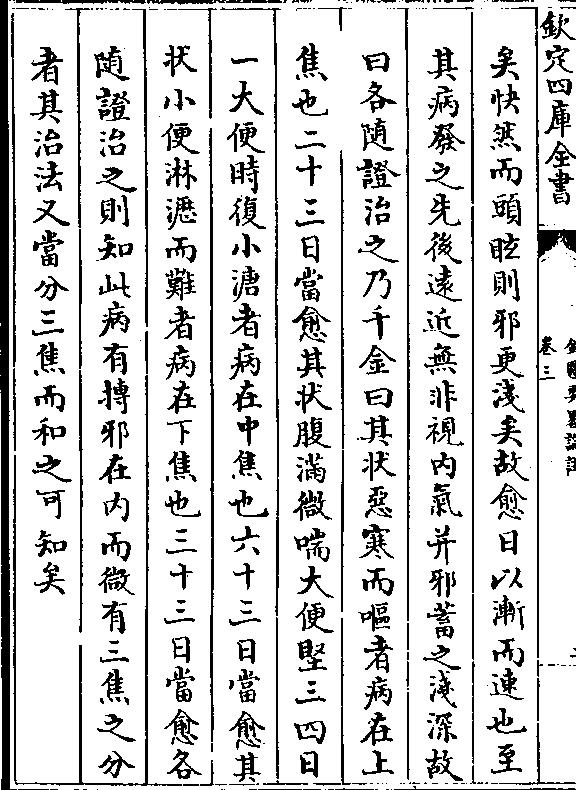 欽定四庫全書
卷三
矣快然而頭眩則邪更淺矣故愈日以漸而速也至
其病發之先後遠近無非視内氣并邪蓄之淺深故
曰各随證治之乃千金曰其状惡寒而嘔者病在上
焦也二十三日當愈其状腹滿微喘大便堅三四日
一大便時復小溏者病在中焦也六十三日當愈其
状小便淋瀝而難者病在下焦也三十三日當愈各
随證治之則知此病有摶邪在内而微有三焦之分
者其治法又當分三焦而和之可知矣